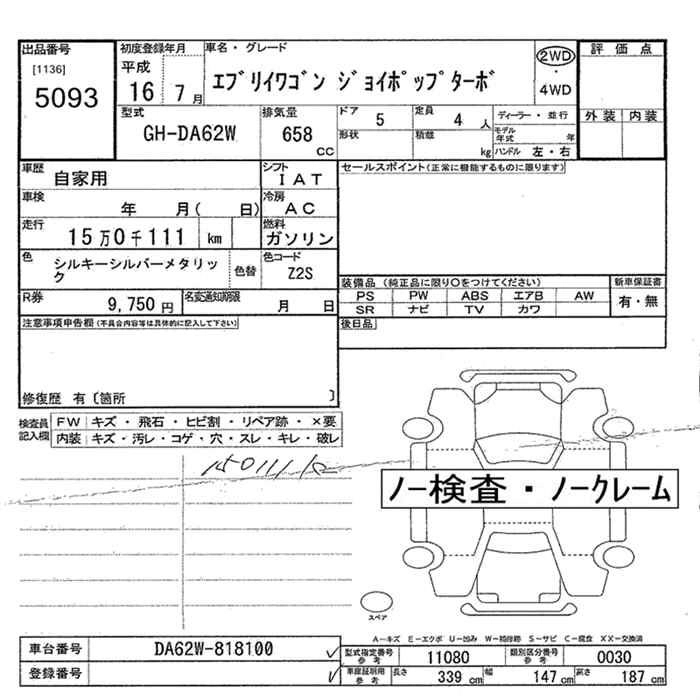 出品番号
[1136]
5093
初度登録年月
平成
16 7 月
車名・グレード
エブリイワゴン ジョイポップターボ
2WD
・
4WD
評価点
外装 内装
型式
GH-DA62W
排気量
658
cc
ドア 5
形状
定員 4 人
積載 kg
ディーラー・並行
モデル年式 年
ハンドル 左・右
車歴
自家用
シフト
IAT
車検
年 月( 日)
冷房
AC
走行
15万0千111 km
燃料
ガソリン
色
シルキーシルバーメタリック
色替
色コード
Z2S
R券
9,750 円
名変通知期限
月 日
セールスポイント(正常に機能するものに限ります)
装備品 (純正品に限り○をつけてください)
PS PW ABS エアB AW
SR ナビ TV カワ
新車保証書
有・無
後日品
注意事項申告欄(不具合内容等は具体的に記入して下さい)
修復歴 有〔箇所 〕
検査員記入欄
FW キズ・飛石・ヒビ割・リペア跡・×要
内装 キズ・汚レ・コゲ・穴・スレ・キレ・破レ
ノー検査・ノークレーム
スペア
A-キズ E-エクボ U-凹み W-補修跡 S-サビ C-腐食 XX-交換済
車台番号 DA62W-818100
登録番号
型式指定番号 参考 11080
類別区分番号 参考 0030
車庫証明用 参考 長さ 339 cm 幅 147 cm 高さ 187 cm